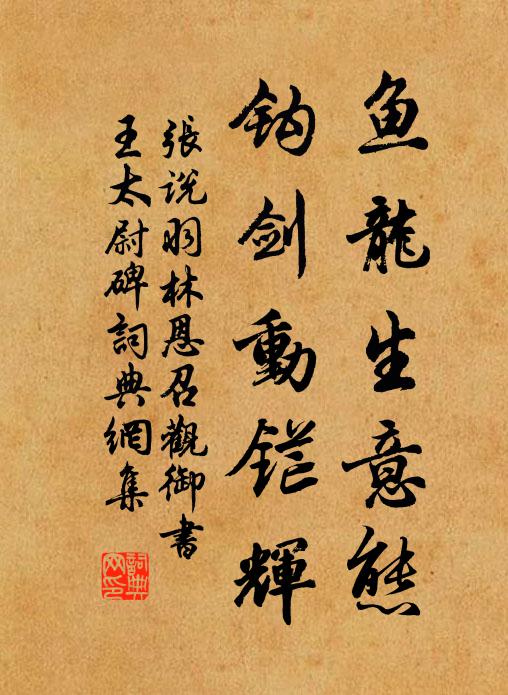 鱼龍生意態
钩劍動铓輝
張説羽林恩召觀御書
王太尉碑詞典網集
詞典
网印